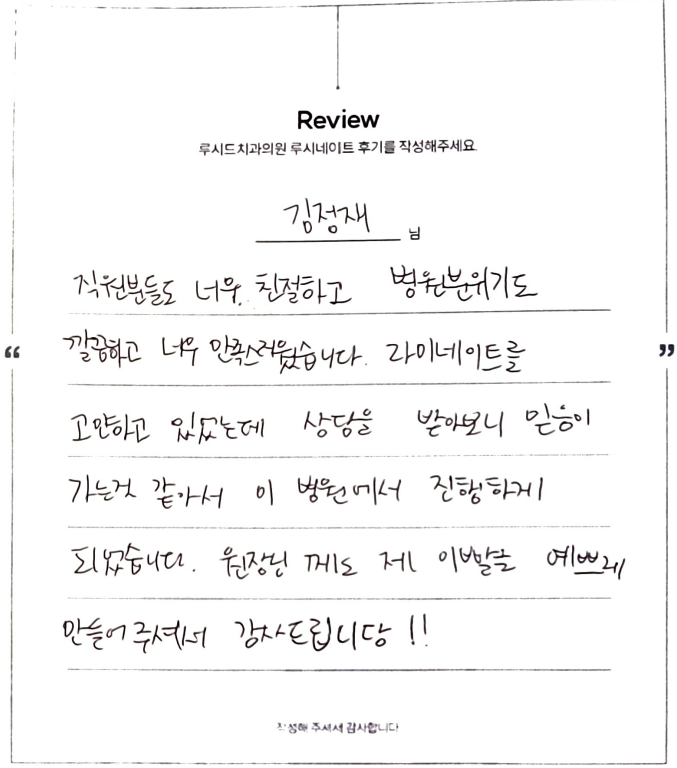 Review
루시드치과의원 루시네이트 후기를 작성해주세요.
김정재 님
직원분들도 너무 친절하고 병원분위기도
“ 깔끔하고 너무 만족스러웠습니다. 라미네이트를 ”
고민하고 있었는데 상담을 받아보니 믿음이
가는것 같아서 이 병원에서 진행하게
되었습니다. 원장님 께도 제 이빨을 예쁘게
만들어주셔서 감사드립니당 !!
작성해 주셔서 감사합니다